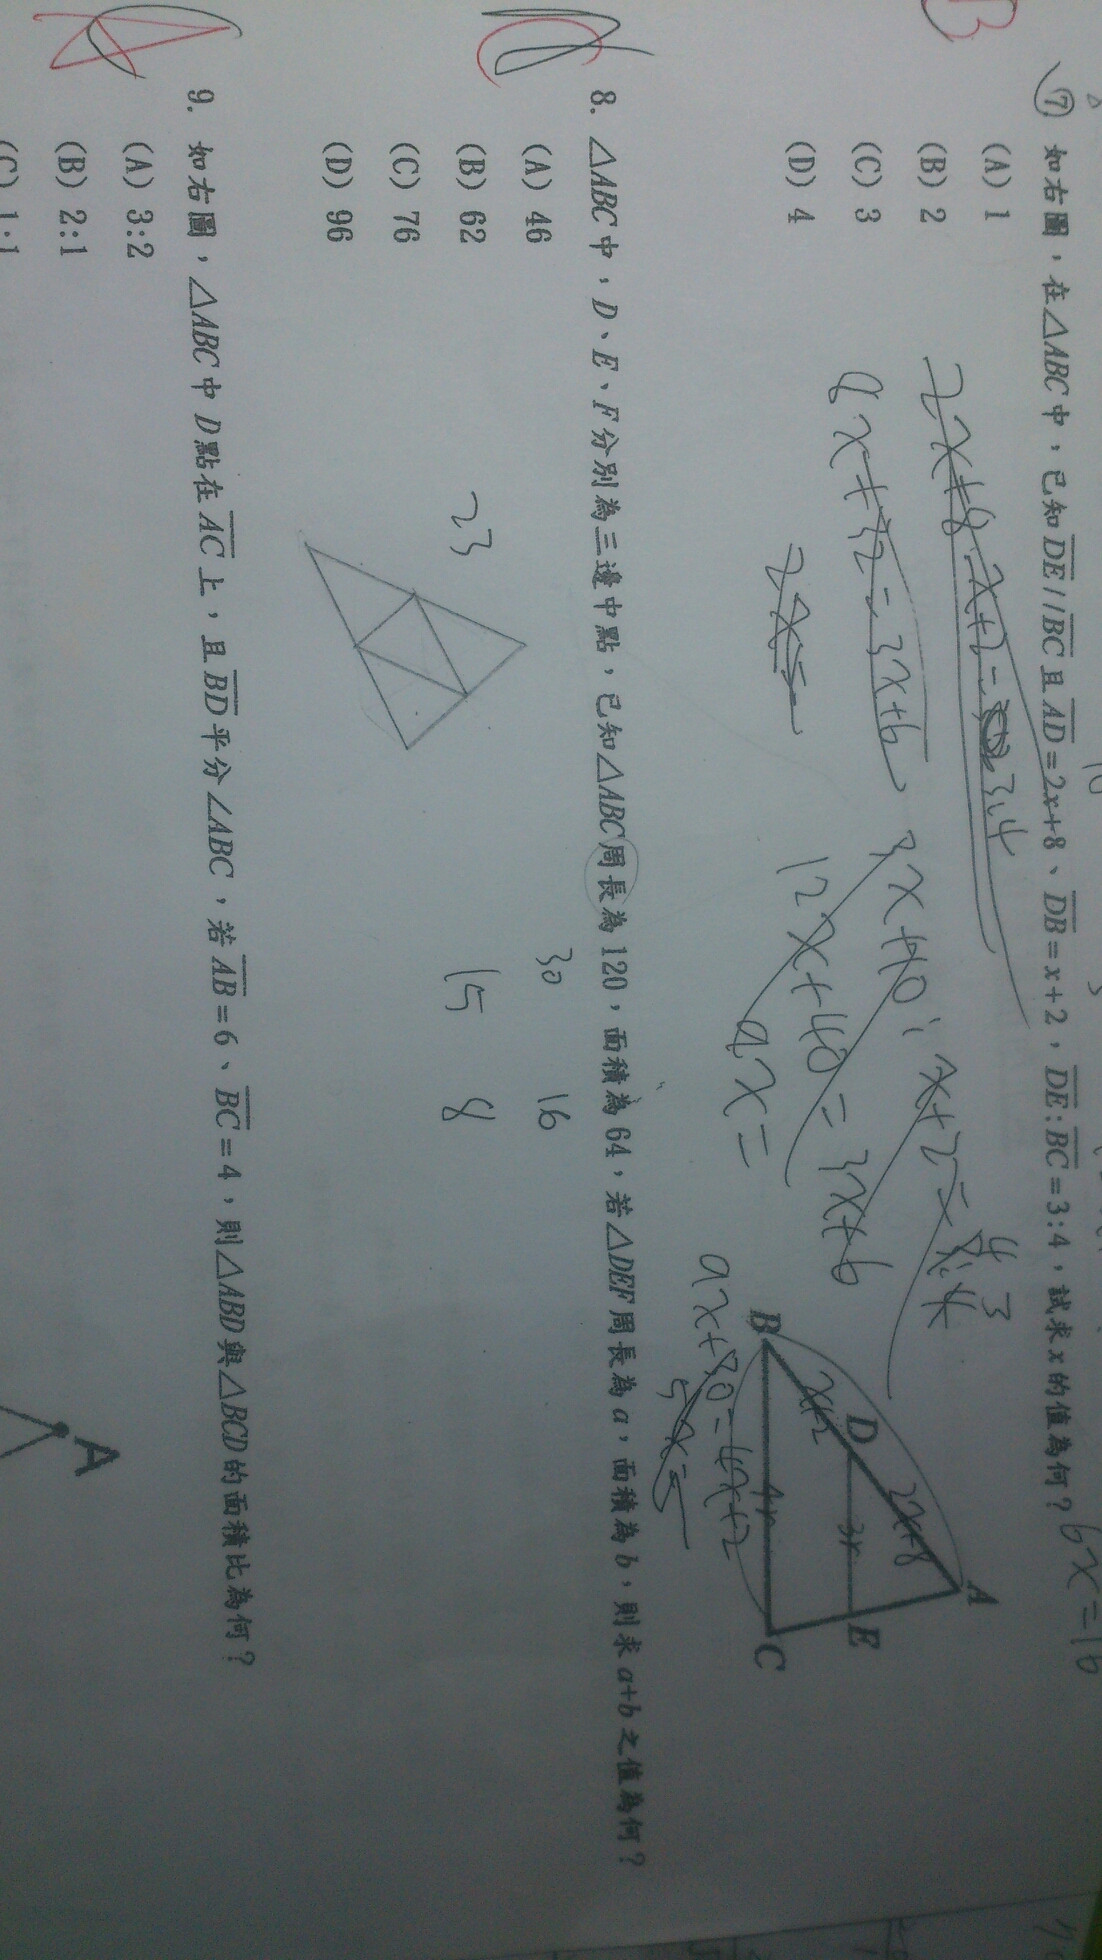 B
⑦ 如右圖，在△ABC中，已知DE//BC且AD=2x+8、DB=x+2，DE:BC=3:4，試求x的值為何？ 6x=16
(A) 1
(B) 2
(C) 3
(D) 4
2x+8:x+2=3:4
8x+32=3x+6
2x=
3x+10:x+2=
4 3
12x+40=3x+6
9x=
9x+30=4x+2
5x=
A
2x+8
D
3x
E
x+2
B
4x
C
8. △ABC中，D、E、F分別為三邊中點，已知△ABC周長為120，面積為64，若△DEF周長為a，面積為b，則求a+b之值為何？
(A) 46
(B) 62
(C) 76
(D) 96
30 16
23 15 8
9. 如右圖，△ABC中D點在AC上，且BD平分∠ABC，若AB=6、BC=4，則△ABD與△BCD的面積比為何？
(A) 3:2
(B) 2:1
(C) 1:1
A